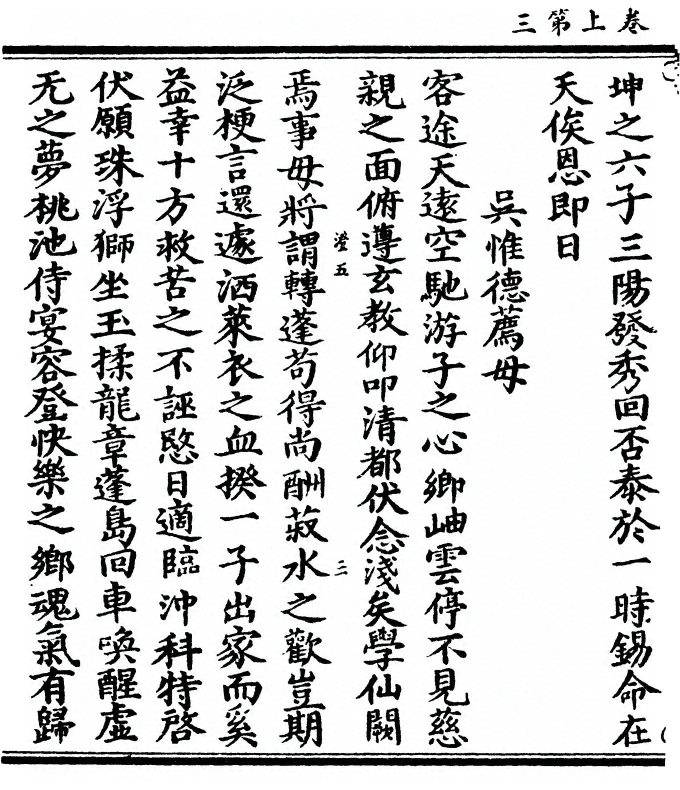 卷上第三
坤之六子三陽發秀回否泰於一時錫命在
天俟恩即日
吳惟德薦母
客途天遠空馳游子之心鄉岫雲停不見慈
親之面俯遵玄教仰叩清都伏念淺矣學仙闕
焉事母將謂轉蓬苟得尚酬菽水之歡豈期
澄五
三
泛梗言還遽洒萊衣之血揆一子出家而奚
益幸十方救苦之不誣愍日適臨沖科特啓
伏願珠浮獅坐玉揉龍章蓬島回車喚醒虛
无之夢桃池侍宴容登快樂之鄉魂氣有歸